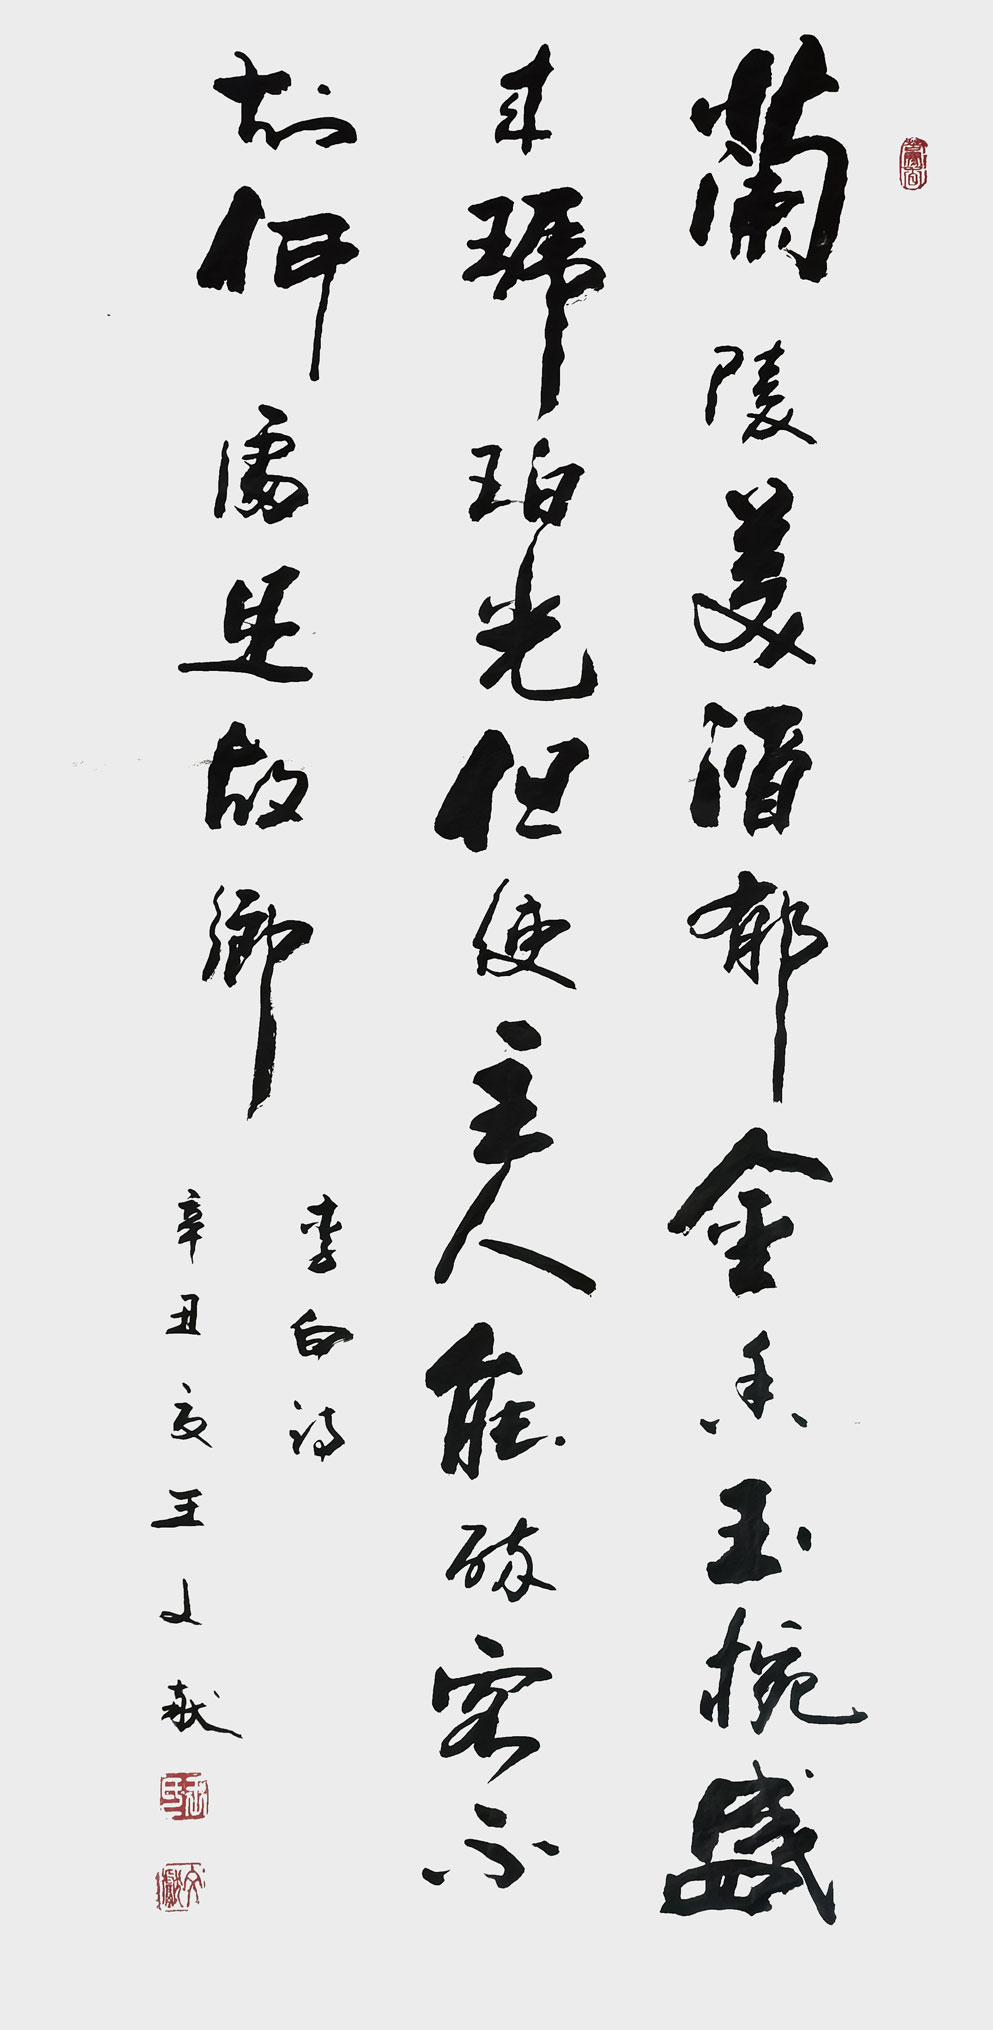 蘭陵美酒郁金香玉椀盛
来琥珀光但使主人能醉客不
知何處是故鄉
李白詩
辛丑夏王文献